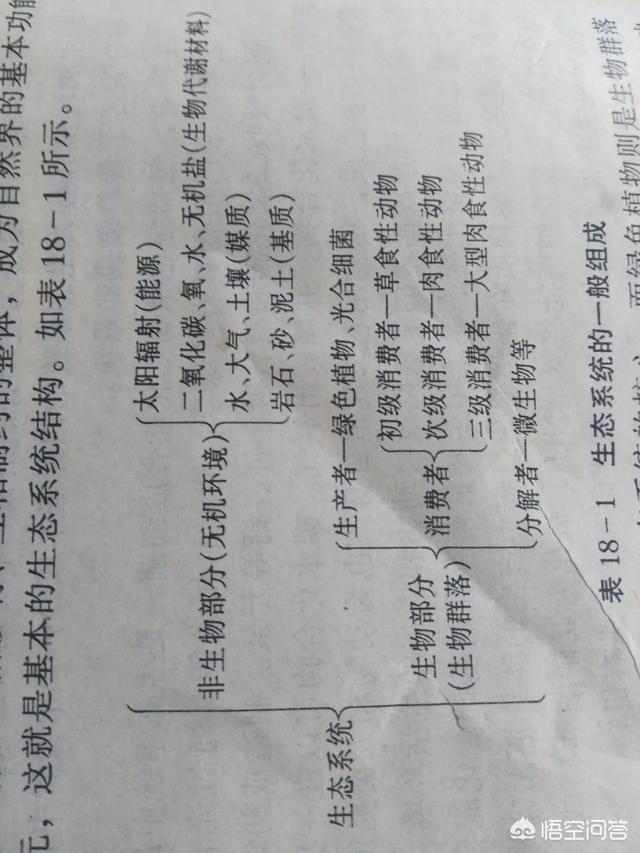 成为自然界的基本功
元，这就是基本的生态系统结构。如表 18-1 所示。
太阳辐射(能源)
二氧化碳、氧、水、无机盐(生物代谢材料)
非生物部分(无机环境)
水、大气、土壤(媒质)
岩石、砂、泥土(基质)
生态系统
生产者—绿色植物、光合细菌
初级消费者—草食性动物
生物部分
(生物群落)
消费者
次级消费者—肉食性动物
三级消费者—大型肉食性动物
分解者—微生物等
表 18-1 生态系统的一般组成
植物则是生物群落
悟空问答